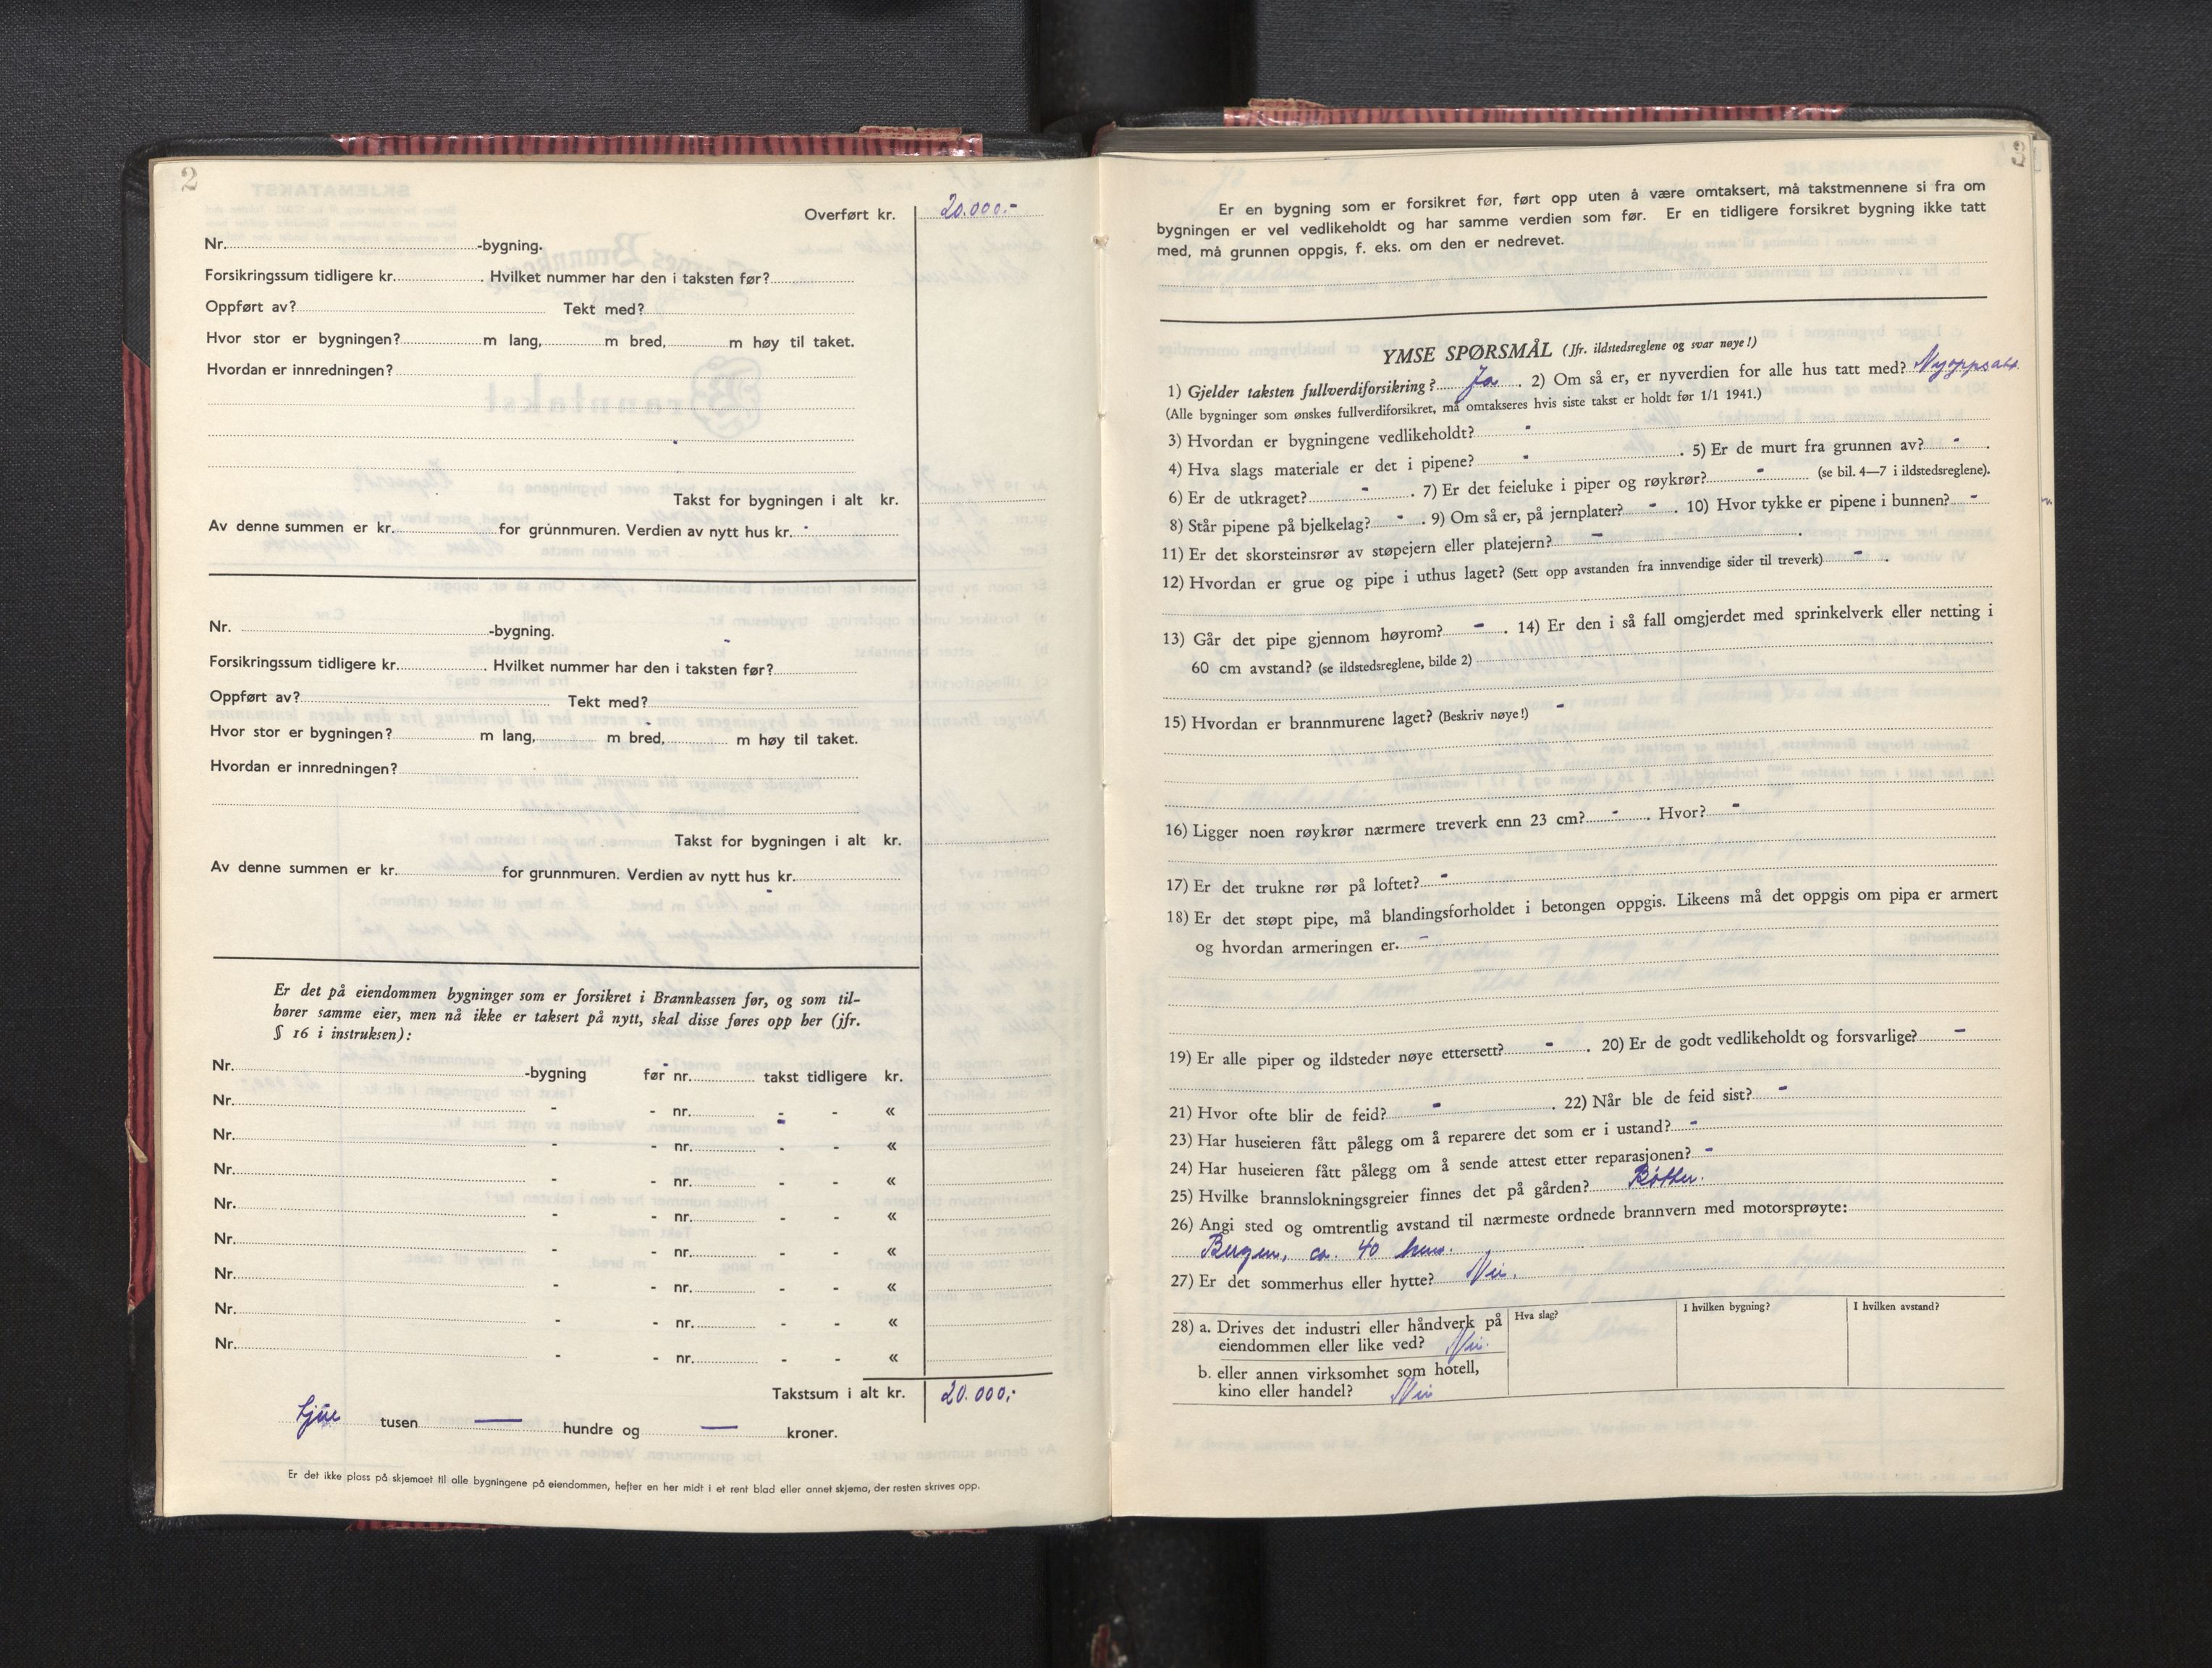 2
Overført kr. 20.000.-
Nr. -bygning.
Forsikringssum tidligere kr. . Hvilket nummer har den i taksten før?
Oppført av? Tekt med?
Hvor stor er bygningen? m lang, m bred, m høy til taket.
Hvordan er innredningen?
Takst for bygningen i alt kr.
Av denne summen er kr. for grunnmuren. Verdien av nytt hus kr.
Nr. -bygning.
Forsikringssum tidligere kr. . Hvilket nummer har den i taksten før?
Oppført av? Tekt med?
Hvor stor er bygningen? m lang, m bred, m høy til taket.
Hvordan er innredningen?
Takst for bygningen i alt kr.
Av denne summen er kr. for grunnmuren. Verdien av nytt hus kr.
Er det på eiendommen bygninger som er forsikret i Brannkassen før, og som til-
hører samme eier, men nå ikke er taksert på nytt, skal disse føres opp her (jfr.
§ 16 i instruksen):
Nr. -bygning før nr. takst tidligere kr.
Nr. - - nr. - - «
Nr. - - nr. - - «
Nr. - - nr. - - «
Nr. - - nr. - - «
Nr. - - nr. - - «
Nr. - - nr. - - «
Nr. - - nr. - - «
Nr. - - nr. - - «
Takstsum i alt kr. 20.000,-
tjue tusen — hundre og — kroner.
Er det ikke plass på skjemaet til alle bygningene på eiendommen, hefter en her midt i et rent blad eller annet skjema, der resten skrives opp.
3
Er en bygning som er forsikret før, ført opp uten å være omtaksert, må takstmennene si fra om
bygningen er vel vedlikeholdt og har samme verdien som før. Er en tidligere forsikret bygning ikke tatt
med, må grunnen oppgis, f. eks. om den er nedrevet.
YMSE SPØRSMÅL (Jfr. ildstedsreglene og svar nøye!)
1) Gjelder taksten fullverdiforsikring? Ja . 2) Om så er, er nyverdien for alle hus tatt med? Nyoppsatt
(Alle bygninger som ønskes fullverdiforsikret, må omtakseres hvis siste takst er holdt før 1/1 1941.)
3) Hvordan er bygningene vedlikeholdt? -
4) Hva slags materiale er det i pipene? - . 5) Er de murt fra grunnen av? - .
6) Er de utkraget? - . 7) Er det feieluke i piper og røykrør? - (se bil. 4—7 i ildstedsreglene).
8) Står pipene på bjelkelag? - . 9) Om så er, på jernplater? - . 10) Hvor tykke er pipene i bunnen? -
11) Er det skorsteinsrør av støpejern eller platejern? - .
12) Hvordan er grue og pipe i uthus laget? (Sett opp avstanden fra innvendige sider til treverk) - .
13) Går det pipe gjennom høyrom? - . 14) Er den i så fall omgjerdet med sprinkelverk eller netting i
60 cm avstand? (se ildstedsreglene, bilde 2)
15) Hvordan er brannmurene laget? (Beskriv nøye!) -
16) Ligger noen røykrør nærmere treverk enn 23 cm? - . Hvor? -
17) Er det trukne rør på loftet? -
18) Er det støpt pipe, må blandingsforholdet i betongen oppgis. Likeens må det oppgis om pipa er armert
og hvordan armeringen er. -
19) Er alle piper og ildsteder nøye ettersett? - . 20) Er de godt vedlikeholdt og forsvarlige? -
21) Hvor ofte blir de feid? - . 22) Når ble de feid sist? -
23) Har huseieren fått pålegg om å reparere det som er i ustand? -
24) Har huseieren fått pålegg om å sende attest etter reparasjonen? -
25) Hvilke brannslokningsgreier finnes det på gården? Bøtter.
26) Angi sted og omtrentlig avstand til nærmeste ordnede brannvern med motorsprøyte:
Bergen, ca. 40 km.
27) Er det sommerhus eller hytte? Nei.
28) a. Drives det industri eller håndverk på Hva slag? I hvilken bygning? I hvilken avstand?
eiendommen eller like ved? Nei.
b. eller annen virksomhet som hotell,
kino eller handel? Nei